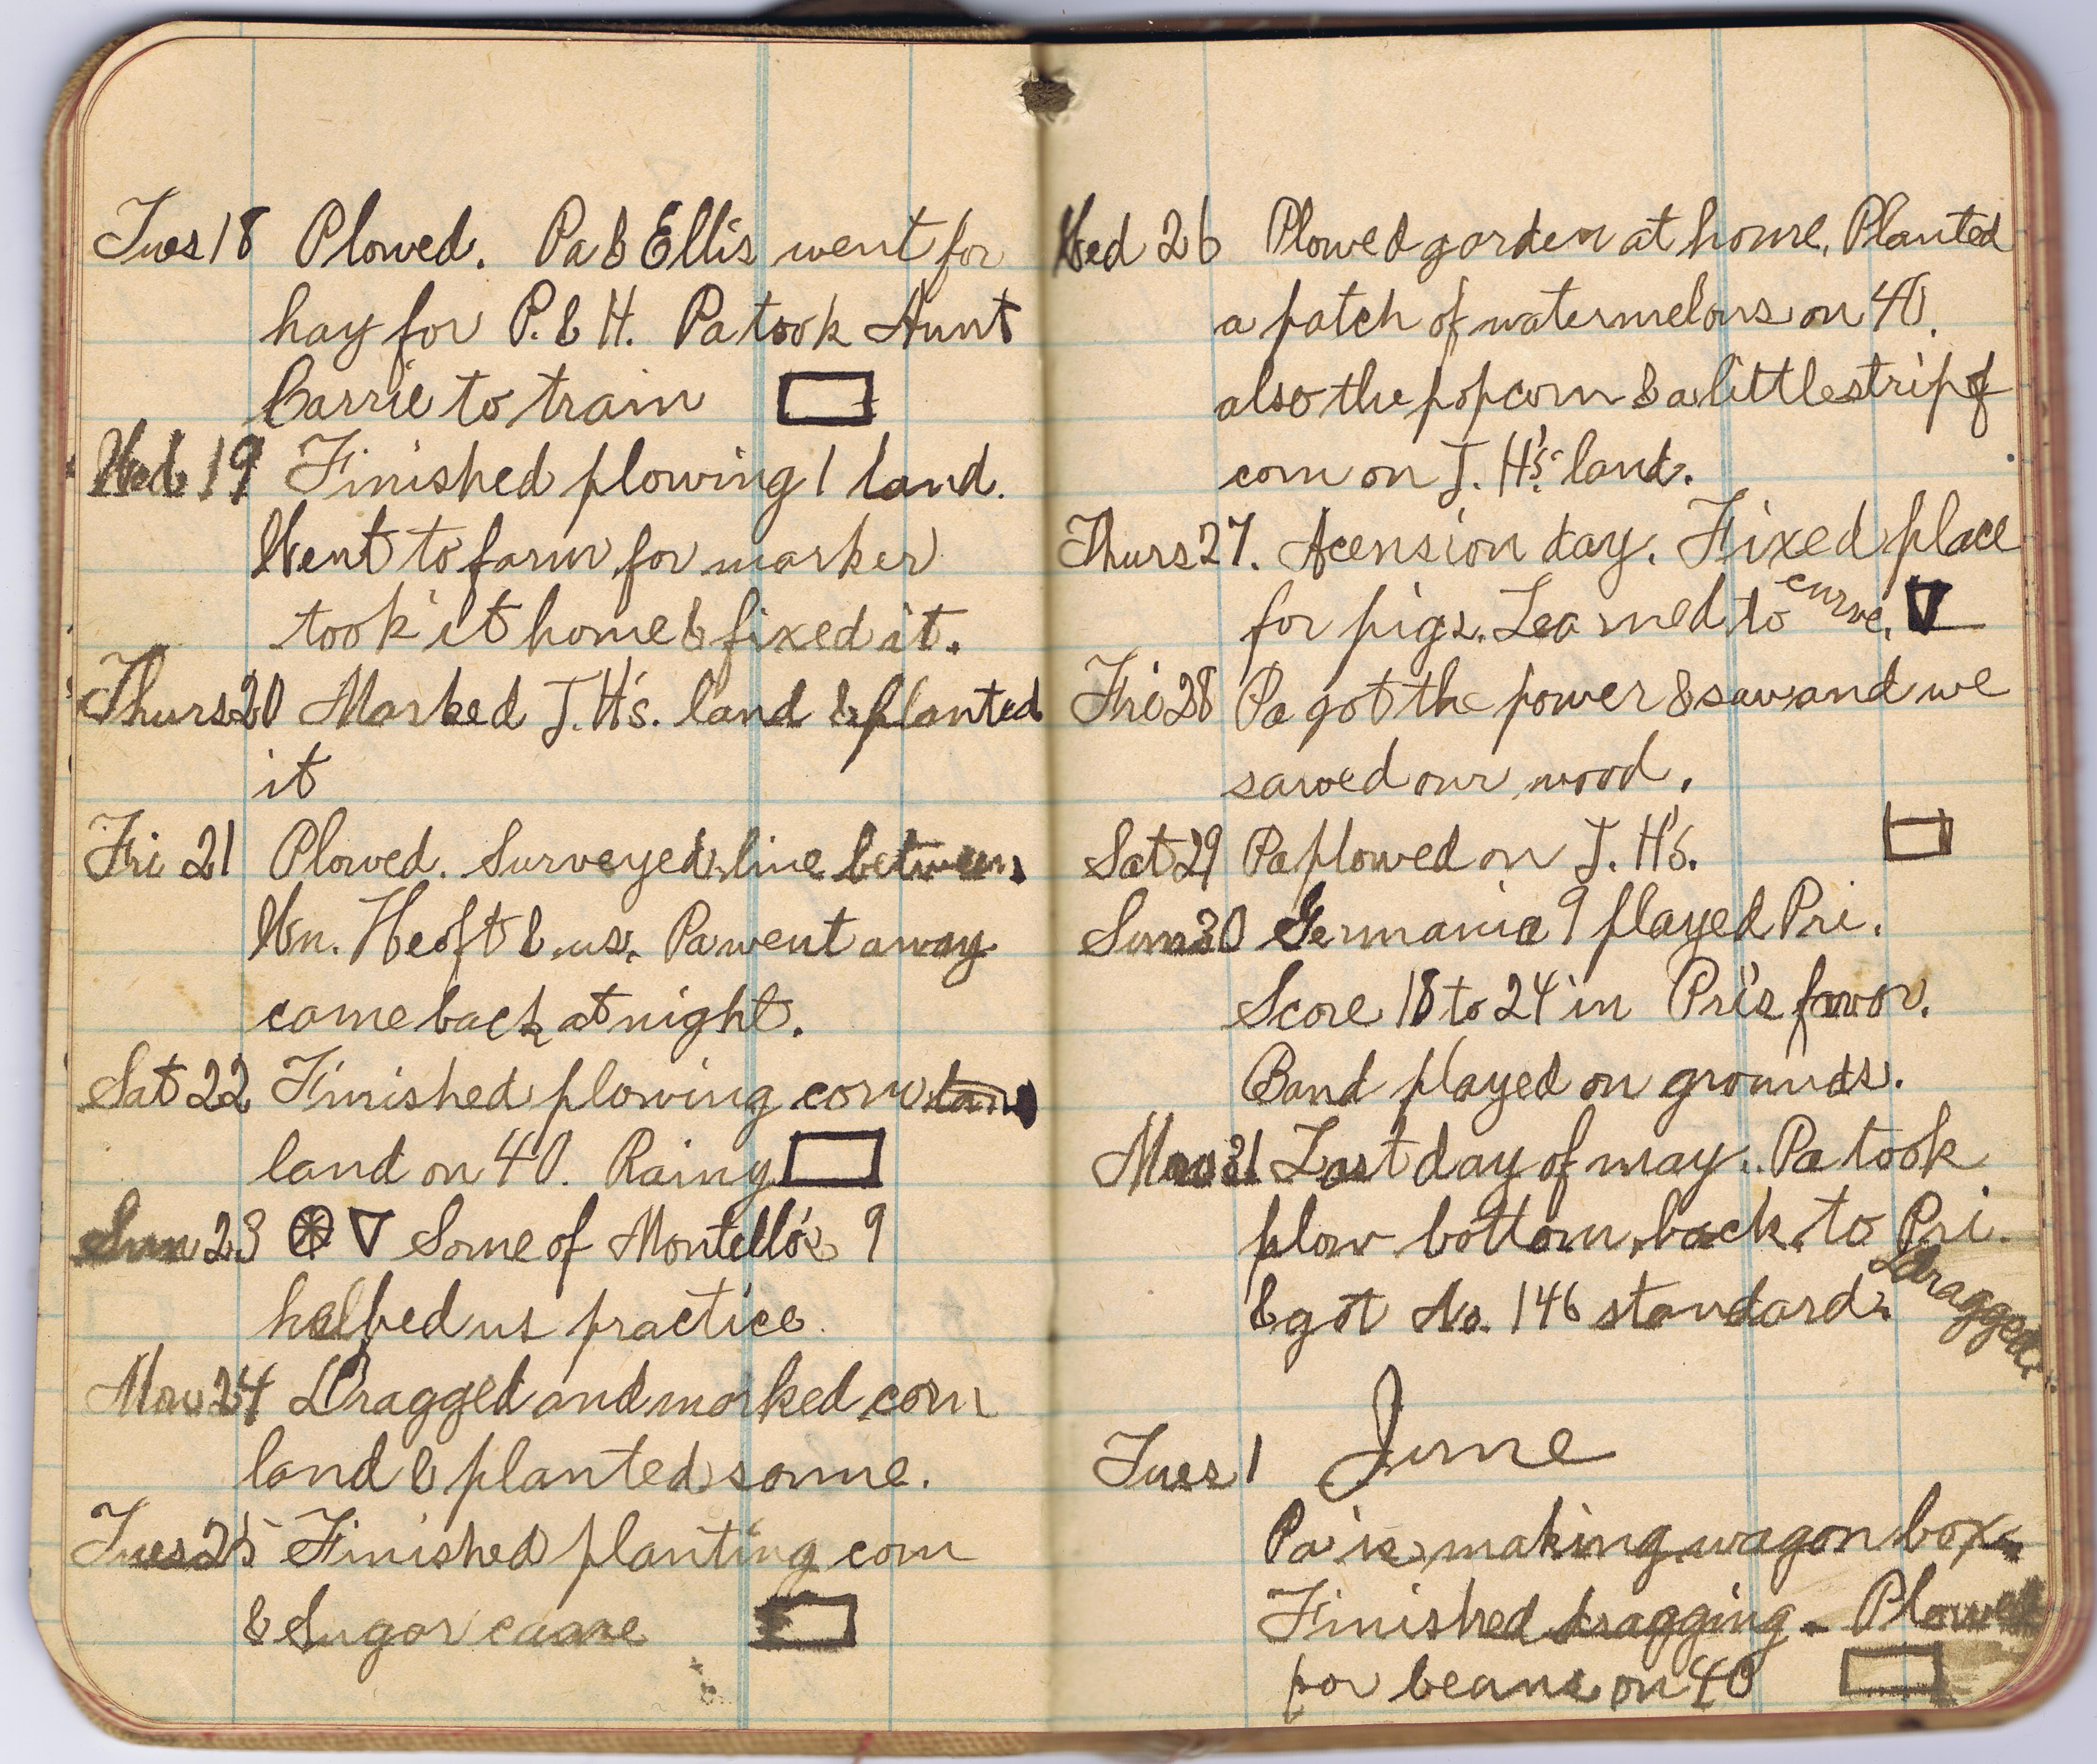 Tues 18 Plowed. Pa & Ellis went for
hay for P. & H. Pa took Aunt
Carrie to train
Wed 19 Finished plowing 1 land.
Went to farm for marker
took it home & fixed it.
Thurs 20 Marked J. H's. land & planted
it
Fri 21 Plowed. Surveyed line between
Wm. Heoft & us. Pa went away
came back at night.
Sat 22 Finished plowing corn
land on 40. Rainy
Sun 23 Some of Montello's 9
helped us practice.
Mon 24 Dragged and marked corn
land & planted some.
Tues 25 Finished planting corn
& Sugar caane
Wed 26 Plowed garden at home. Planted
a patch of watermelons on 40.
also the popcorn & a little strip of
corn on J. H's. land.
Thurs 27. Acension day. Fixed place
for pigs. Learned to curve.
Fri 28 Pa got the power & saw and we
sawed our wood.
Sat 29 Pa plowed on J. H's.
Sun 30 Germania 9 played Pri.
Score 18 to 24 in Pri's favor.
Band played on grounds.
Mon 31 Last day of may. Pa took
plow bottom back to Pri.
& got No. 146 standard. Dragged.
Tues 1 June
Pa is making wagon box.
Finished dragging. Plowed
for beans on 40